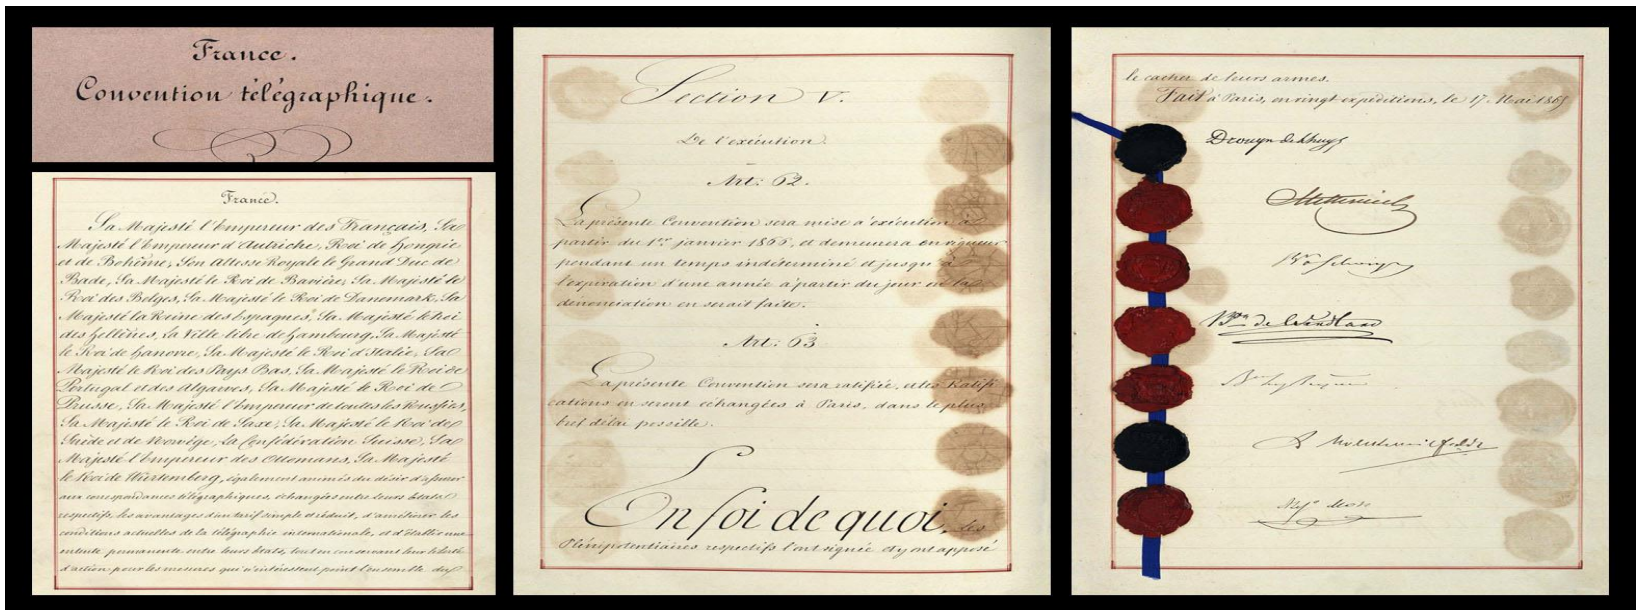 France.
Convention télégraphique.
France.
Sa Majesté l'Empereur des Français, Sa
Majesté l'Empereur d'Autriche, Roi de Hongrie
et de Bohême, Son Altesse Royale le Grand Duc de
Bade, Sa Majesté le Roi de Bavière, Sa Majesté le
Roi des Belges, Sa Majesté le Roi de Danemark, Sa
Majesté la Reine des Espagnes, Sa Majesté le Roi
des Hellènes, la Ville libre de Hambourg, Sa Majesté
le Roi de Hanovre, Sa Majesté le Roi d'Italie, Sa
Majesté le Roi des Pays Bas, Sa Majesté le Roi de
Portugal et des Algarves, Sa Majesté le Roi de
Prusse, Sa Majesté l'Empereur de toutes les Russies,
Sa Majesté le Roi de Saxe, Sa Majesté le Roi de
Suède et de Norvège, la Confédération Suisse, Sa
Majesté l'Empereur des Ottomans, Sa Majesté
le Roi de Wurtemberg, également animés du désir d'assurer
aux correspondances télégraphiques, échangées entre leurs États
respectifs, les avantages d'un tarif simple et réduit, d'améliorer les
conditions actuelles de la télégraphie internationale, et d'établir une
entente permanente entre leurs États, tout en conservant leur liberté
d'action pour les mesures qui n'intéressent point l'ensemble du
Section V.
De l'exécution.
Art: 62.
La présente Convention sera mise à exécution à
partir du 1er janvier 1866, et demeurera en vigueur
pendant un temps indéterminé et jusqu'à
l'expiration d'une année à partir du jour où la
dénonciation en serait faite.
Art: 63
La présente Convention sera ratifiée, et les Ratifi
cations en seront échangées à Paris, dans le plus
bref délai possible.
En foi de quoi, les
Plénipotentiaires respectifs l'ont signée et y ont apposé
le cachet de leurs armes.
Fait à Paris, en vingt expéditions, le 17. Mai 1865
Drouyn de Lhuys
Metternich
Bon de Wendland